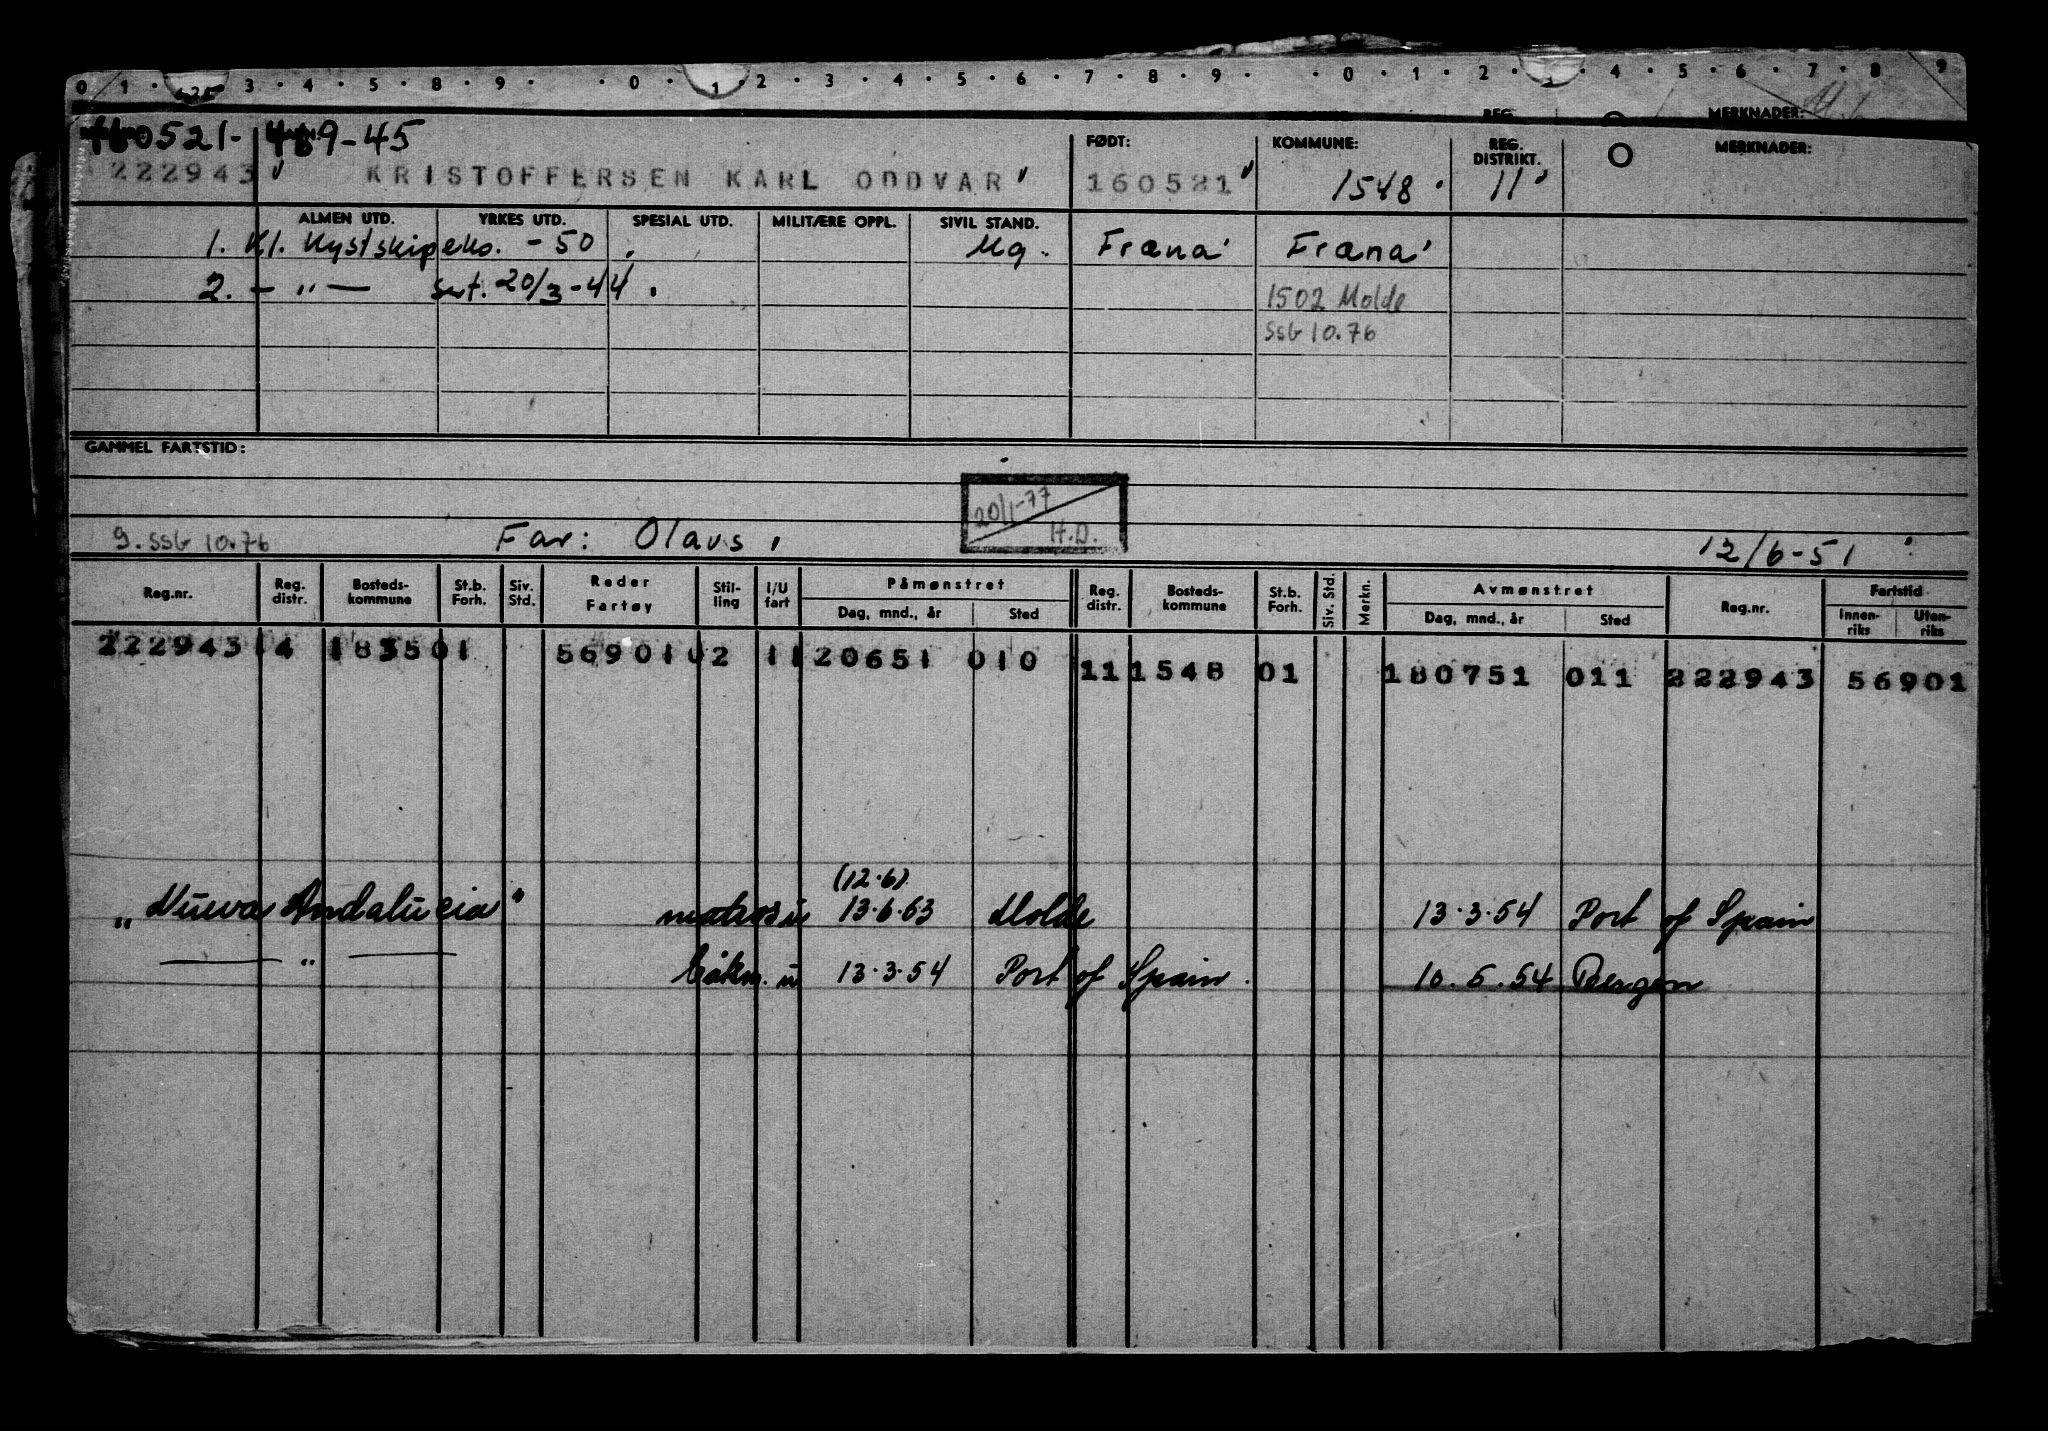 0 1 · 3 · 4 · 5 · 8 · 9 · · 0 · 1 2 · 3 · 4 · 5 · 6 · 7 · 8 · 9 · · 0 · 1 · 2 · 3 · 4 · 5 · 6 · 7 · 8 · 9
MERKNADER:
160521- 469-45
FØDT: KOMMUNE: REG. DISTRIKT. MERKNADER:
222943 KRISTOFFERSEN KARL ODDVAR 160521 1548 11
ALMEN UTD. YRKES UTD. SPESIAL UTD. MILITÆRE OPPL. SIVIL STAND.
1. Kl. Kystskip eks. - 50 Ug. Fræna Fræna
2. — " — sert. 20/3-44 1502 Molde
SSG 10.76
GAMMEL FARTSTID:
20/1-77
H.D.
9. SSG 10.76 Far: Olavs 12/6-51
Reg.nr. Reg. distr. Bosteds-kommune St.b. Forh. Siv. Std. Reder Fartøy Stil-ling I/U fart Påmønstret Dag, mnd., år Sted Reg. distr. Bosteds-kommune St.b. Forh. Siv. Std. Merkn. Avmønstret Dag, mnd., år Sted Reg.nr. Fartstid Innen-riks Uten-riks
222943 14 1835 01 56901 02 1 120651 010 11 1548 01 180751 011 222943 56901
(12.6)
„Nueva Andalucia" matros u 13.6.53 Molde 13.3.54 Port of Spain
— " — båtsm. u 13.3.54 Port of Spain. 10.5.54 Bergen